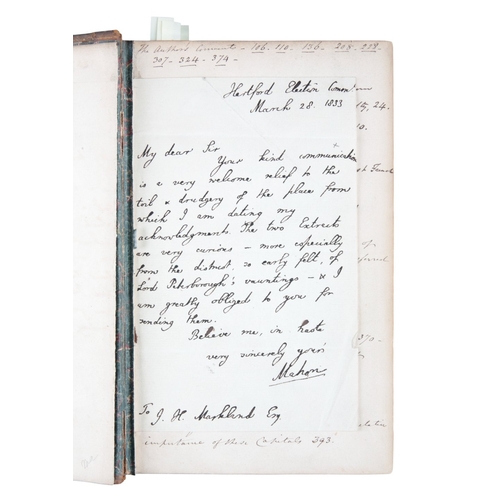 The Author's Comments - 106. 110. 136. 208. 218.
307 - 324 - 374 -
Hertford Election Comm
March 28. 1833
15, 24.
My dear Sir
Your kind communication
is a very welcome relief to the
toil & drudgery of the place from
which I am dating my
acknowledgments. The two Extracts
are very curious - more especially
from the distrust, so early felt, of
Lord Peterborough's vauntings - & I
am greatly obliged to you for
sending them.
370 -
Believe me, in haste
very sincerely yours
Mahon
To J. H. Markland Esq
importance of these Capitals 393.